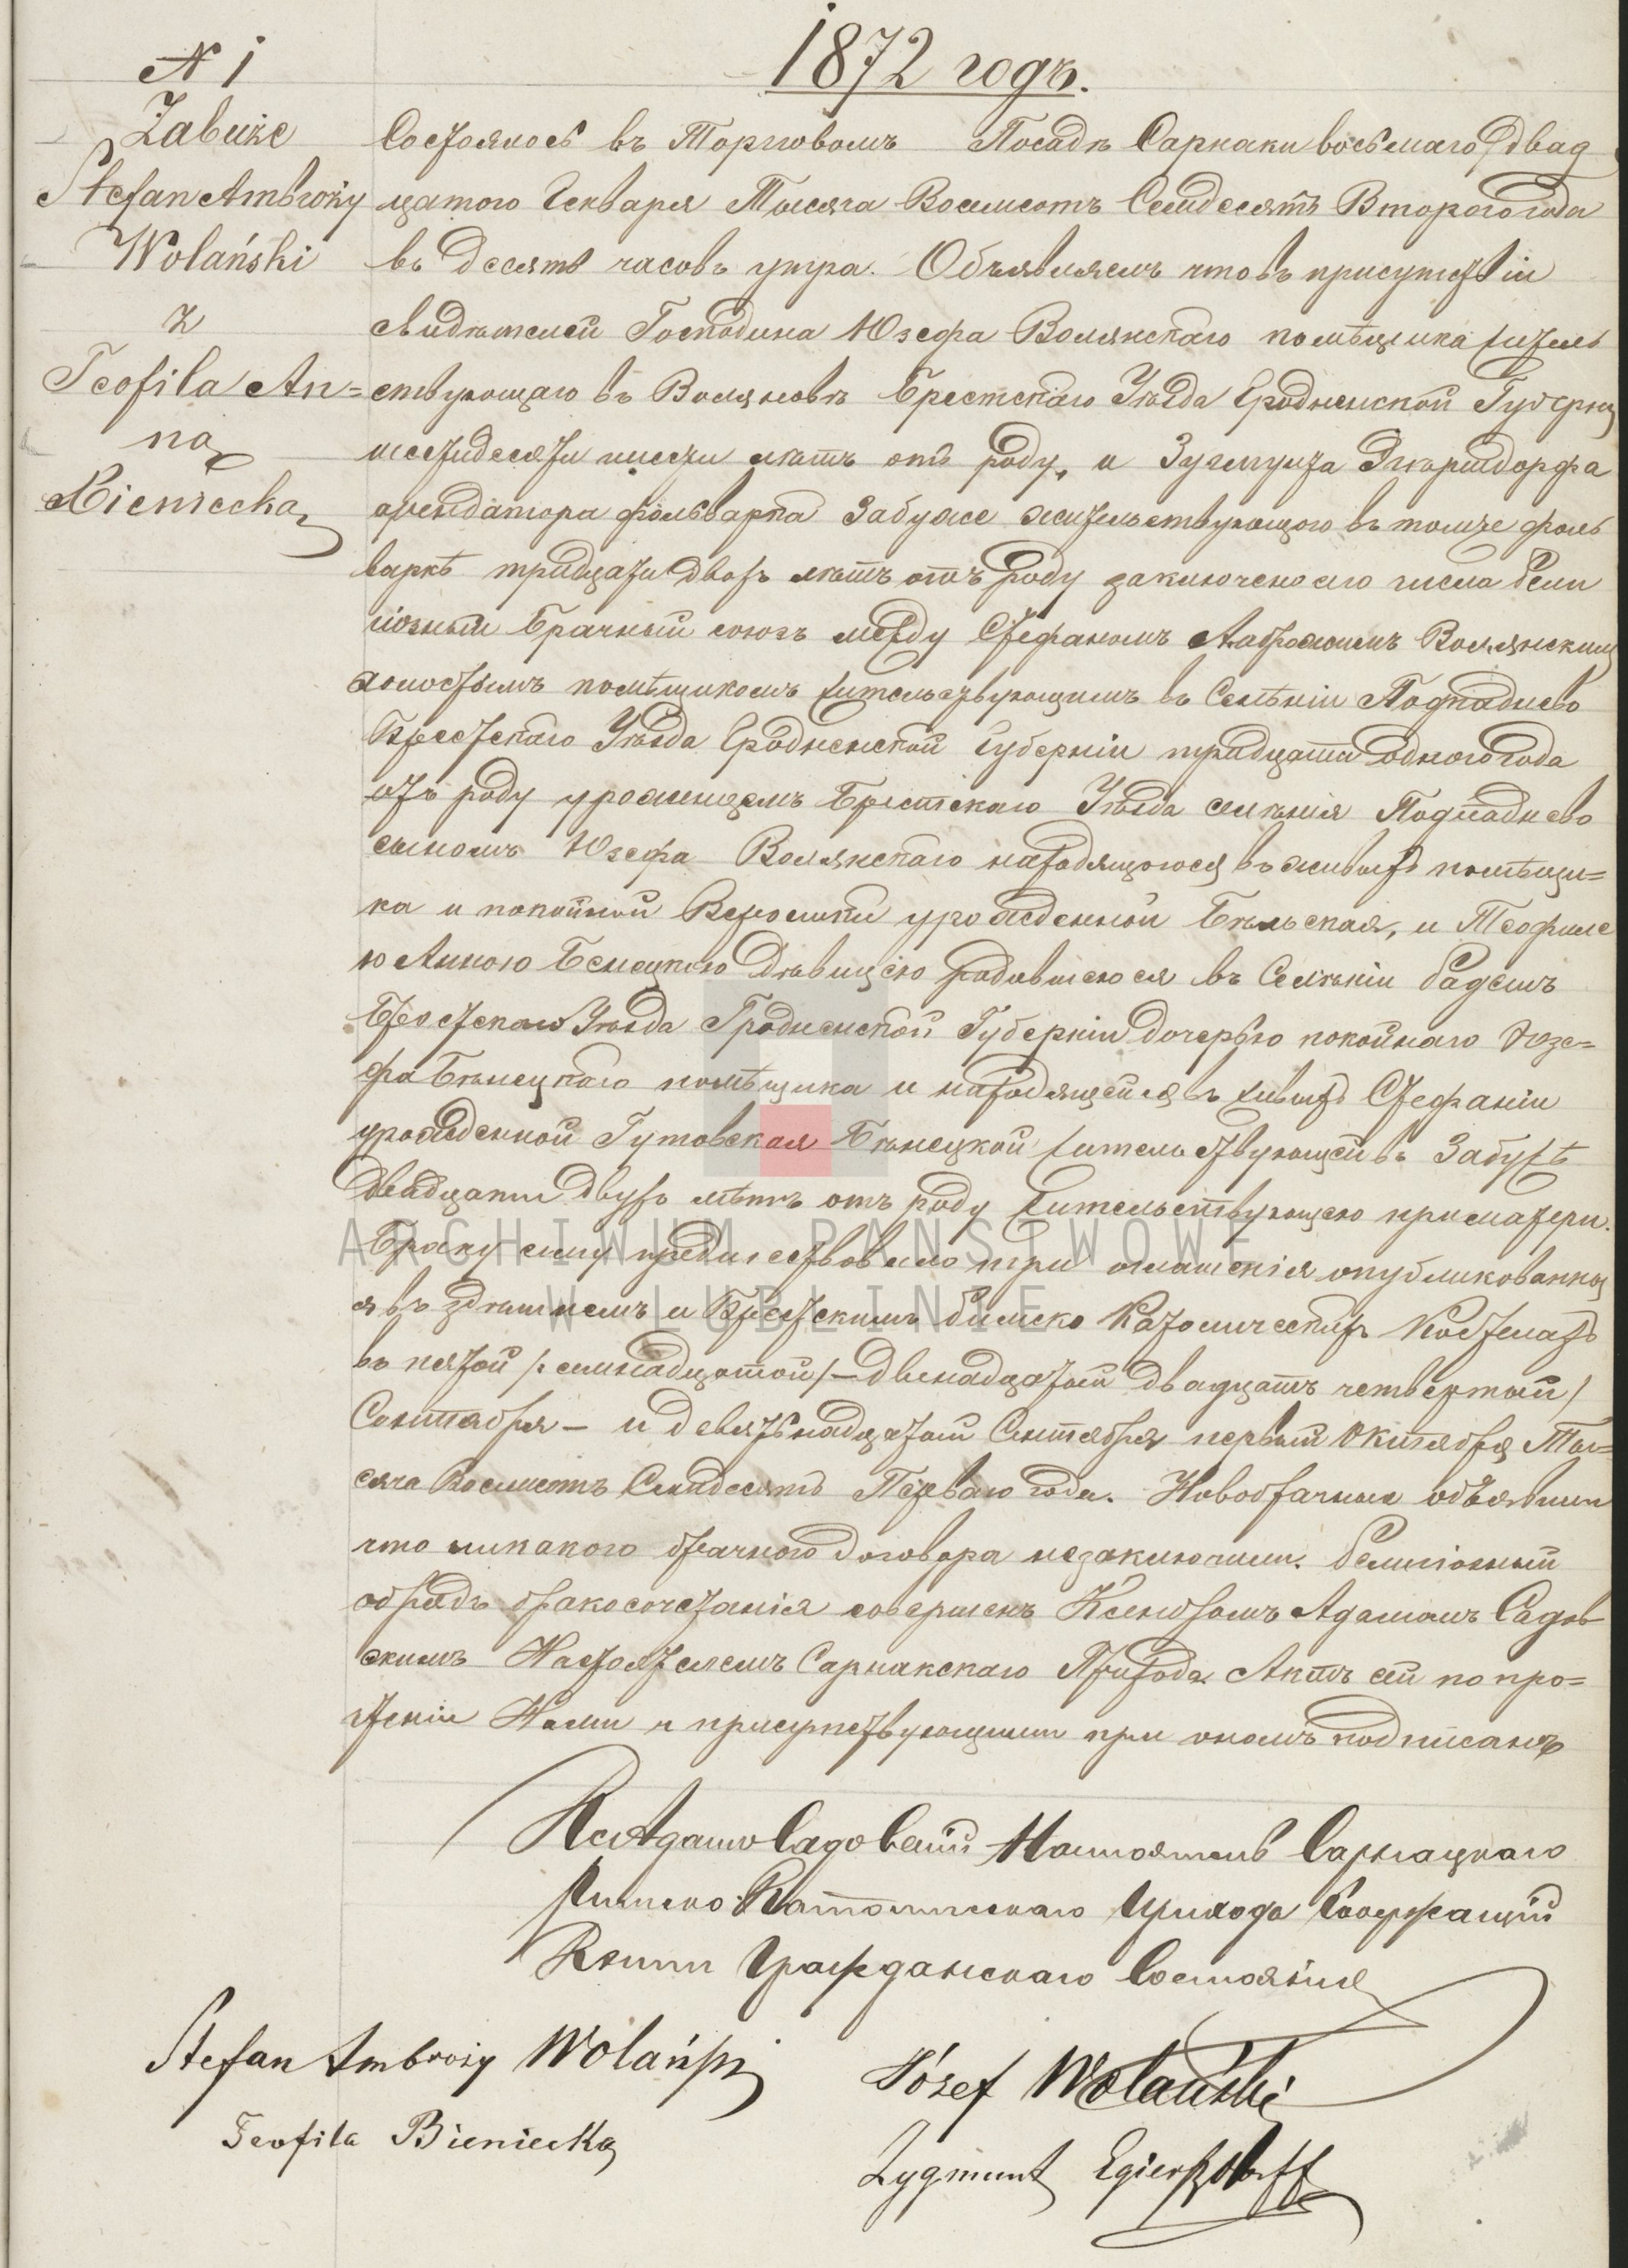 N 1
1872 годъ.
Zabuże
Stefan Ambroży
Wolański
z
Teofila An=
na
Bieniecka
Состоялось въ Торговомъ Посадѣ Сарнаки восьмаго/двад
цатого Генваря Тысяча Восемсотъ Семдесятъ Второго года
въ десять часовъ утра. Объявляемъ что въ присутствіи
свидѣтелей Господина Юзефа Волянскаго помѣщика житель
ствующаго въ Воляновѣ Брестскаго Уѣзда Гродненской Губерніи
шестидесяти шести лѣтъ отъ роду, и Зугмунта Эгерсдорфа
арендатора фольварка Забуже жительствующого въ томже фоль
варкѣ тридцати двохъ лѣтъ отъ роду заключено сего числа Рели
гіозный Брачный союзъ между Стефаномъ Амброжимъ Волянскимъ
холостымъ помѣщикомъ жительствующимъ въ Селѣніи
Брестскаго Уѣзда Гродненской Губерніи тридцати одного года
отъ роду уроженцемъ Брестскаго Уѣзда селѣнія
сыномъ Юзефа Волянскаго находящогося въ живыхъ помѣщи=
ка и покойной урожденной Бѣльская, и Теофиле
ю Анною Бенецкою Дѣвицею родившеюся въ Селѣніи
Брестскаго Уѣзда Гродненской Губерніи дочерью покойнаго Юзе=
фа Бѣнецкаго помѣщика и находящейся въ живыхъ Стефаніи
урожденной Гутовская Бѣнецкой жительствующей въ Забужѣ
двадцати двухъ лѣтъ отъ роду жительствующею при матери.
Браку сему предшествовало три оглашенія опубликованны
я въ здѣшнемъ и Брестскимъ Римско Католическихъ Костелахъ
въ пятой /семнадцатой/ – двенадцатой двадцать четвертой/
Сентября – и девятьнадцатой Сентября первый Октября Ты=
сяча Восемсотъ Семдесятъ Перваго года. Новобрачныя объявили
что никакого брачного договора незаключили. Религіозный
обрядъ бракосочетанія совершенъ Ксендзомъ Адамомъ Садов
скимъ Настоятелемъ Сарнакскаго Прихода. Актъ сей по про=
чтеніи Нами и присутствующими при ономъ подписанъ
Кс Адамъ Садовскій Настоятель Сарнацкаго
Римско Католическаго Прихода Содержащій
Книги Гражданскаго Состоянія
Stefan Ambroży Wolański
Józef Wolański
Teofila Bieniecka
Zygmunt Egiersdorff
ARCHIWUM PAŃSTWOWE
W LUBLINIE